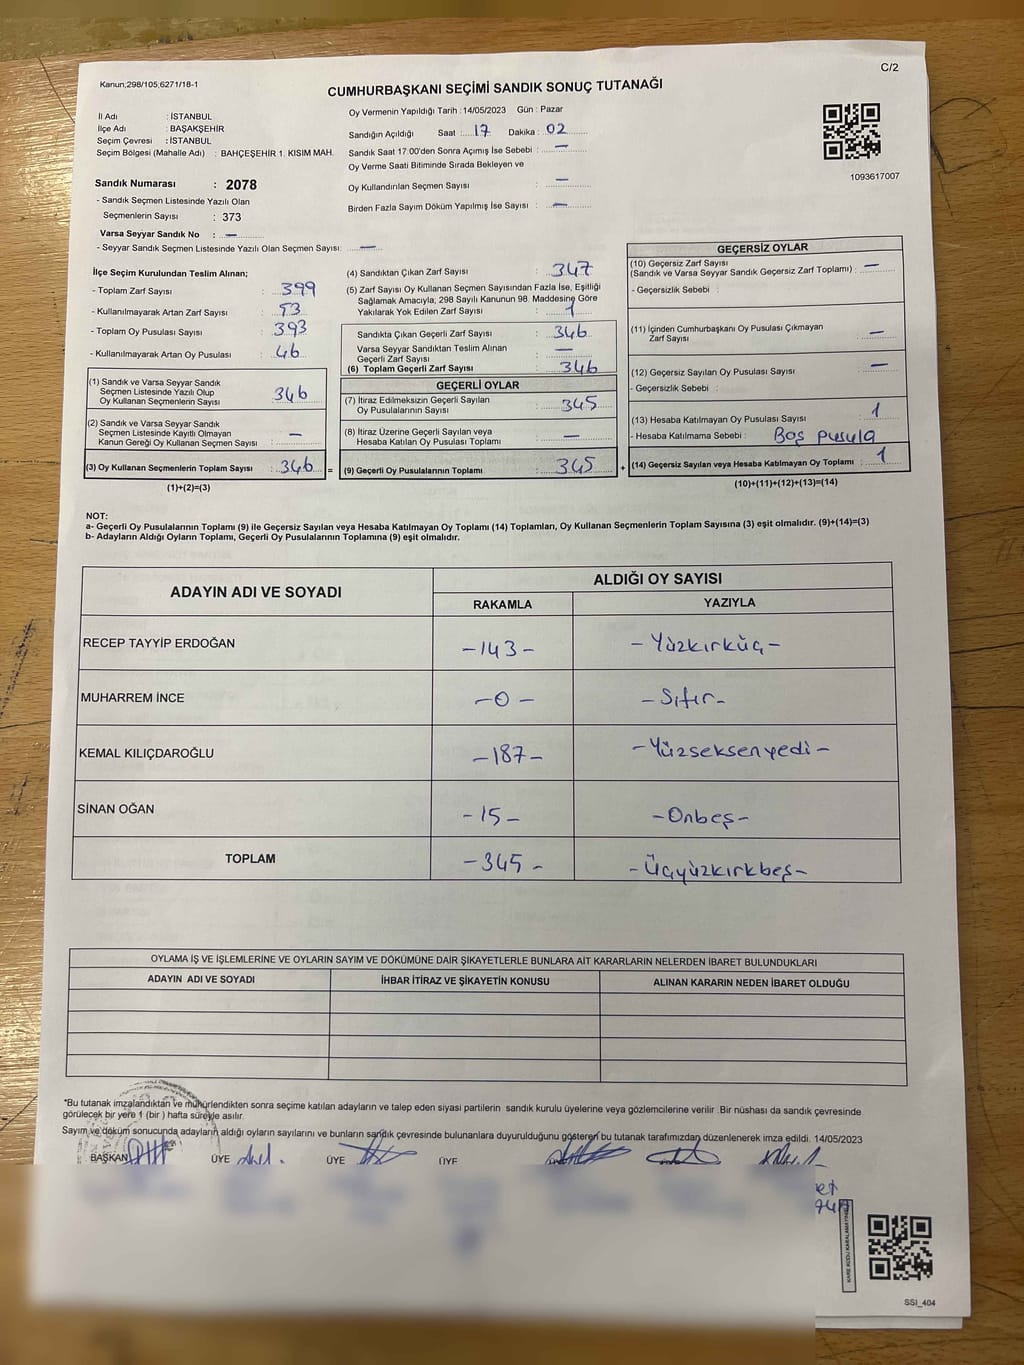 C/2
Kanun,298/105,6271/18-1
CUMHURBAŞKANI SEÇİMİ SANDIK SONUÇ TUTANAĞI
İl Adı : İSTANBUL
İlçe Adı : BAŞAKŞEHİR
Seçim Çevresi : İSTANBUL
Seçim Bölgesi (Mahalle Adı) : BAHÇEŞEHİR 1. KISIM MAH.
Sandık Numarası : 2078
- Sandık Seçmen Listesinde Yazılı Olan
Seçmenlerin Sayısı : 373
Varsa Seyyar Sandık No : —
- Seyyar Sandık Seçmen Listesinde Yazılı Olan Seçmen Sayısı: —
Oy Vermenin Yapıldığı Tarih :14/05/2023 Gün : Pazar
Sandığın Açıldığı Saat : 17 Dakika : 02
Sandık Saat 17:00'den Sonra Açımış İse Sebebi : —
Oy Verme Saati Bitiminde Sırada Bekleyen ve
Oy Kullandırılan Seçmen Sayısı : —
Birden Fazla Sayım Döküm Yapılmış İse Sayısı : —
1093617007
İlçe Seçim Kurulundan Teslim Alınan;
- Toplam Zarf Sayısı : 399
- Kullanılmayarak Artan Zarf Sayısı : 53
- Toplam Oy Pusulası Sayısı : 393
- Kullanılmayarak Artan Oy Pusulası : 46
(1) Sandık ve Varsa Seyyar Sandık
Seçmen Listesinde Yazılı Olup
Oy Kullanan Seçmenlerin Sayısı : 346
(2) Sandık ve Varsa Seyyar Sandık
Seçmen Listesinde Kayıtlı Olmayan
Kanun Gereği Oy Kullanan Seçmen Sayısı : —
(3) Oy Kullanan Seçmenlerin Toplam Sayısı : 346 =
(1)+(2)=(3)
(4) Sandıktan Çıkan Zarf Sayısı : 347
(5) Zarf Sayısı Oy Kullanan Seçmen Sayısından Fazla İse, Eşitliği
Sağlamak Amacıyla, 298 Sayılı Kanunun 98. Maddesine Göre
Yakılarak Yok Edilen Zarf Sayısı : 1
Sandıkta Çıkan Geçerli Zarf Sayısı : 346
Varsa Seyyar Sandıktan Teslim Alınan
Geçerli Zarf Sayısı : —
(6) Toplam Geçerli Zarf Sayısı : 346
GEÇERLİ OYLAR
(7) İtiraz Edilmeksizin Geçerli Sayılan
Oy Pusulalarının Sayısı : 345
(8) İtiraz Üzerine Geçerli Sayılan veya
Hesaba Katılan Oy Pusulası Toplamı : —
(9) Geçerli Oy Pusulalarının Toplamı : 345 +
GEÇERSİZ OYLAR
(10) Geçersiz Zarf Sayısı
(Sandık ve Varsa Seyyar Sandık Geçersiz Zarf Toplamı) : —
- Geçersizlik Sebebi :
(11) İçinden Cumhurbaşkanı Oy Pusulası Çıkmayan
Zarf Sayısı : —
(12) Geçersiz Sayılan Oy Pusulası Sayısı : —
- Geçersizlik Sebebi :
(13) Hesaba Katılmayan Oy Pusulası Sayısı : 1
- Hesaba Katılmama Sebebi : Boş pusula
(14) Geçersiz Sayılan veya Hesaba Katılmayan Oy Toplamı : 1
(10)+(11)+(12)+(13)=(14)
NOT:
a- Geçerli Oy Pusulalarının Toplamı (9) ile Geçersiz Sayılan veya Hesaba Katılmayan Oy Toplamı (14) Toplamları, Oy Kullanan Seçmenlerin Toplam Sayısına (3) eşit olmalıdır. (9)+(14)=(3)
b- Adayların Aldığı Oyların Toplamı, Geçerli Oy Pusulalarının Toplamına (9) eşit olmalıdır.
ADAYIN ADI VE SOYADI
ALDIĞI OY SAYISI
RAKAMLA YAZIYLA
RECEP TAYYİP ERDOĞAN -143- -Yüzkırküç-
MUHARREM İNCE -0- -Sıfır-
KEMAL KILIÇDAROĞLU -187- -Yüzseksenyedi-
SİNAN OĞAN -15- -Onbeş-
TOPLAM -345- -Üçyüzkırkbeş-
OYLAMA İŞ VE İŞLEMLERİNE VE OYLARIN SAYIM VE DÖKÜMÜNE DAİR ŞİKAYETLERLE BUNLARA AİT KARARLARIN NELERDEN İBARET BULUNDUKLARI
ADAYIN ADI VE SOYADI İHBAR İTİRAZ VE ŞİKAYETİN KONUSU ALINAN KARARIN NEDEN İBARET OLDUĞU
*Bu tutanak imzalandıktan ve mühürlendikten sonra seçime katılan adayların ve talep eden siyasi partilerin sandık kurulu üyelerine veya gözlemcilerine verilir .Bir nüshası da sandık çevresinde
görülecek bir yere 1 (bir ) hafta süreyle asılır.
Sayım ve döküm sonucunda adayların aldığı oyların sayılarını ve bunların sandık çevresinde bulunanlara duyurulduğunu gösteren bu tutanak tarafımızdan düzenlenerek imza edildi. 14/05/2023
BAŞKAN ÜYE ÜYE ÜYE
KARE KODU KARALAMAYINIZ
SSI_404